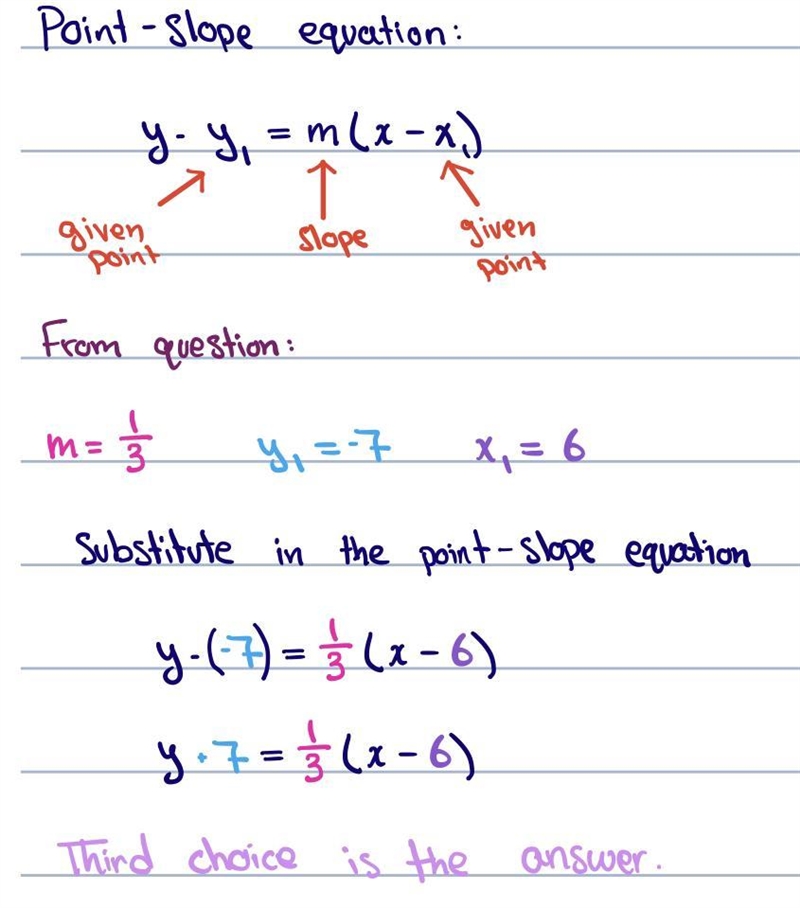 Point-slope equation:
y - y₁ = m(x - x₁)
given point
slope
given point
From question:
m = 1/3 y₁ = -7 x₁ = 6
Substitute in the point-slope equation
y - (-7) = 1/3 (x - 6)
y + 7 = 1/3 (x - 6)
Third choice is the answer.